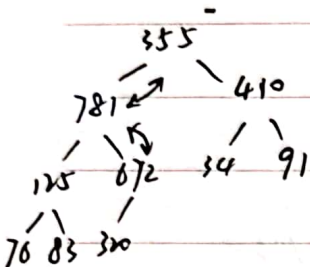 355
781 410
125 672 34 91
76 83 320